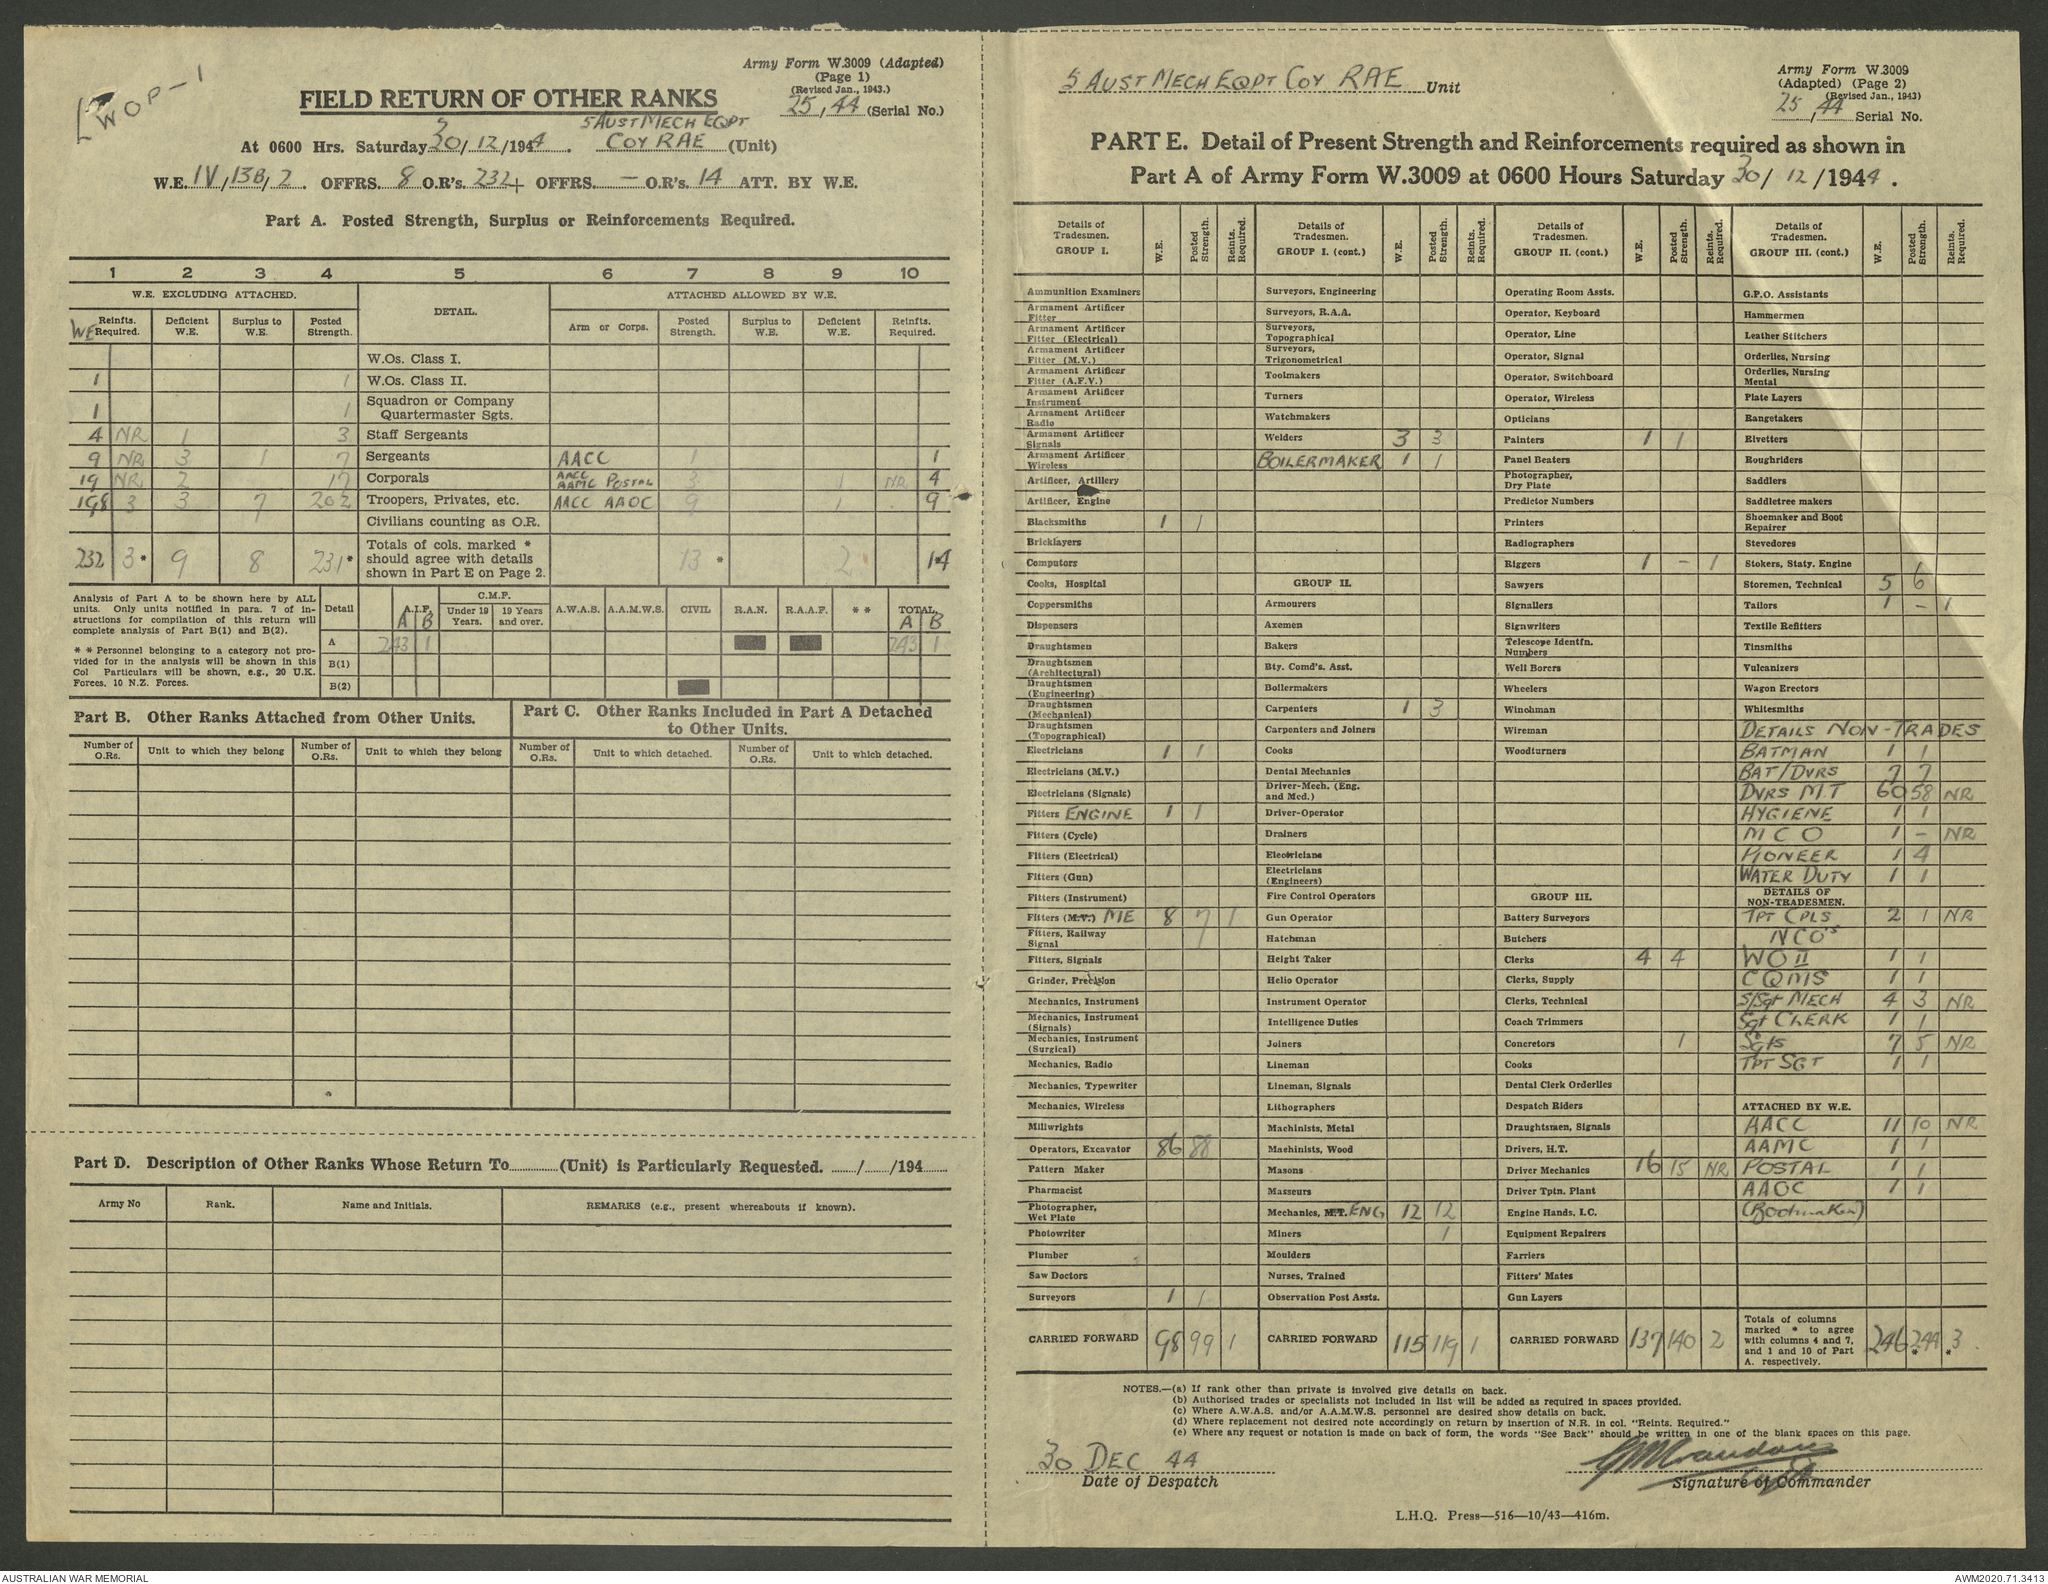 Army Form W.3009 (Adapted)
(Page 1)
(Revised Jan., 1943.)
25, 44 (Serial No.)
[WOP-1
FIELD RETURN OF OTHER RANKS
5 AUST MECH EQPT
At 0600 Hrs. Saturday 30/12/1944. COY RAE (Unit)
W.E. IV, 13B, 2. OFFRS. 8 O.R's. 232+ OFFRS. — O.R's. 14 ATT. BY W.E.
Part A. Posted Strength, Surplus or Reinforcements Required.
1 2 3 4 5 6 7 8 9 10
W.E. EXCLUDING ATTACHED. DETAIL. ATTACHED ALLOWED BY W.E.
WE Reinfts. Required. Deficient W.E. Surplus to W.E. Posted Strength. Arm or Corps. Posted Strength. Surplus to W.E. Deficient W.E. Reinfts. Required.
W.Os. Class I.
1 1 W.Os. Class II.
1 1 Squadron or Company Quartermaster Sgts.
4 NR 1 3 Staff Sergeants
9 NR 3 1 7 Sergeants AACC 1 1
19 NR 2 17 Corporals AACC AAMC POSTAL 3 1 NR 4
198 3 3 7 202 Troopers, Privates, etc. AACC AAOC 9 1 9
Civilians counting as O.R.
232 3* 9 8 231* Totals of cols. marked * should agree with details shown in Part E on Page 2. 13 * 2 14
Analysis of Part A to be shown here by ALL units. Only units notified in para. 7 of instructions for compilation of this return will complete analysis of Part B(1) and B(2).
* * Personnel belonging to a category not provided for in the analysis will be shown in this Col Particulars will be shown, e.g., 20 U.K. Forces, 10 N.Z. Forces.
Detail A.I.F. A B C.M.F. Under 19 Years. 19 Years and over. A.W.A.S. A.A.M.W.S. CIVIL R.A.N. R.A.A.F. * * TOTAL. A B
A 243 1 243 1
B(1)
B(2)
Part B. Other Ranks Attached from Other Units.
Part C. Other Ranks Included in Part A Detached to Other Units.
Number of O.Rs. Unit to which they belong Number of O.Rs. Unit to which they belong Number of O.Rs. Unit to which detached. Number of O.Rs. Unit to which detached.
Part D. Description of Other Ranks Whose Return To............(Unit) is Particularly Requested. ....../....../194......
Army No Rank. Name and Initials. REMARKS (e.g., present whereabouts if known).
5 AUST MECH EQPT COY RAE Unit
Army Form W.3009
(Adapted) (Page 2)
(Revised Jan., 1943)
25, 44 Serial No.
PART E. Detail of Present Strength and Reinforcements required as shown in
Part A of Army Form W.3009 at 0600 Hours Saturday 30/12/1944.
Details of Tradesmen. GROUP I. W.E. Posted Strength. Reints. Required.
Ammunition Examiners
Armament Artificer Fitter
Armament Artificer Fitter (Electrical)
Armament Artificer Fitter (M.V.)
Armament Artificer Fitter (A.F.V.)
Armament Artificer Instrument
Armament Artificer Radio
Armament Artificer Signals
Armament Artificer Wireless
Artificer, Artillery
Artificer, Engine
Blacksmiths 1 1
Bricklayers
Computors
Cooks, Hospital
Coppersmiths
Dispensers
Draughtsmen
Draughtsmen (Architectural)
Draughtsmen (Engineering)
Draughtsmen (Mechanical)
Draughtsmen (Topographical)
Electricians 1 1
Electricians (M.V.)
Electricians (Signals)
Fitters ENGINE 1 1
Fitters (Cycle)
Fitters (Electrical)
Fitters (Gun)
Fitters (Instrument)
Fitters (M.V.) ME 8 7 1
Fitters, Railway Signal
Fitters, Signals
Grinder, Precision
Mechanics, Instrument
Mechanics, Instrument (Signals)
Mechanics, Instrument (Surgical)
Mechanics, Radio
Mechanics, Typewriter
Mechanics, Wireless
Millwrights
Operators, Excavator 86 88
Pattern Maker
Pharmacist
Photographer, Wet Plate
Photowriter
Plumber
Saw Doctors
Surveyors 1 1
CARRIED FORWARD 98 99 1
Details of Tradesmen. GROUP I. (cont.) W.E. Posted Strength. Reints. Required.
Surveyors, Engineering
Surveyors, R.A.A.
Surveyors, Topographical
Surveyors, Trigonometrical
Toolmakers
Turners
Watchmakers
Welders 3 3
BOILERMAKER 1 1
GROUP II.
Armourers
Axemen
Bakers
Bty. Comd's. Asst.
Boilermakers
Carpenters 1 3
Carpenters and Joiners
Cooks
Dental Mechanics
Driver-Mech. (Eng. and Med.)
Driver-Operator
Drainers
Electricians
Electricians (Engineers)
Fire Control Operators
Gun Operator
Hatchman
Height Taker
Helio Operator
Instrument Operator
Intelligence Duties
Joiners
Lineman
Lineman, Signals
Lithographers
Machinists, Metal
Machinists, Wood
Masons
Masseurs
Mechanics, M.T. ENG 12 12
Miners 1
Moulders
Nurses, Trained
Observation Post Assts.
CARRIED FORWARD 115 119 1
Details of Tradesmen. GROUP II. (cont.) W.E. Posted Strength. Reints. Required.
Operating Room Assts.
Operator, Keyboard
Operator, Line
Operator, Signal
Operator, Switchboard
Operator, Wireless
Opticians
Painters 1 1
Panel Beaters
Photographer, Dry Plate
Predictor Numbers
Printers
Radiographers
Riggers 1 - 1
Sawyers
Signallers
Signwriters
Telescope Identfn. Numbers
Well Borers
Wheelers
Winchman
Wireman
Woodturners
GROUP III.
Battery Surveyors
Butchers
Clerks 4 4
Clerks, Supply
Clerks, Technical
Coach Trimmers
Concretors 1
Cooks
Dental Clerk Orderlies
Despatch Riders
Draughtsmen, Signals
Drivers, H.T.
Driver Mechanics 16 15 NR
Driver Tptn. Plant
Engine Hands, I.C.
Equipment Repairers
Farriers
Fitters' Mates
Gun Layers
CARRIED FORWARD 137 140 2
Details of Tradesmen. GROUP III. (cont.) W.E. Posted Strength. Reints. Required.
G.P.O. Assistants
Hammermen
Leather Stitchers
Orderlies, Nursing
Orderlies, Nursing Mental
Plate Layers
Rangetakers
Rivetters
Roughriders
Saddlers
Saddletree makers
Shoemaker and Boot Repairer
Stevedores
Stokers, Staty. Engine
Storemen, Technical 5 6
Tailors 1 - 1
Textile Refitters
Tinsmiths
Vulcanizers
Wagon Erectors
Whitesmiths
DETAILS NON-TRADES
BATMAN 1 1
BAT/DVRS 7 7
DVRS M.T 60 58 NR
HYGIENE 1 1
M C O 1 - NR
PIONEER 1 4
WATER DUTY 1 1
DETAILS OF NON-TRADESMEN.
TPT CPLS 2 1 NR
NCO's
WO II 1 1
CQMS 1 1
S/Sgt MECH 4 3 NR
Sgt CLERK 1 1
Sgts 7 5 NR
TPT SGT 1 1
ATTACHED BY W.E.
AACC 11 10 NR
AAMC 1 1
POSTAL 1 1
AAOC 1 1
(Bootmaker)
Totals of columns marked * to agree with columns 4 and 7, and 1 and 10 of Part A. respectively. 246 244 * 3 *
NOTES.—(a) If rank other than private is involved give details on back.
(b) Authorised trades or specialists not included in list will be added as required in spaces provided.
(c) Where A.W.A.S. and/or A.A.M.W.S. personnel are desired show details on back.
(d) Where replacement not desired note accordingly on return by insertion of N.R. in col. "Reints. Required."
(e) Where any request or notation is made on back of form, the words "See Back" should be written in one of the blank spaces on this page.
30 DEC 44
Date of Despatch
Signature of Commander
L.H.Q. Press—516—10/43—416m.
AUSTRALIAN WAR MEMORIAL
AWM2020.71.3413